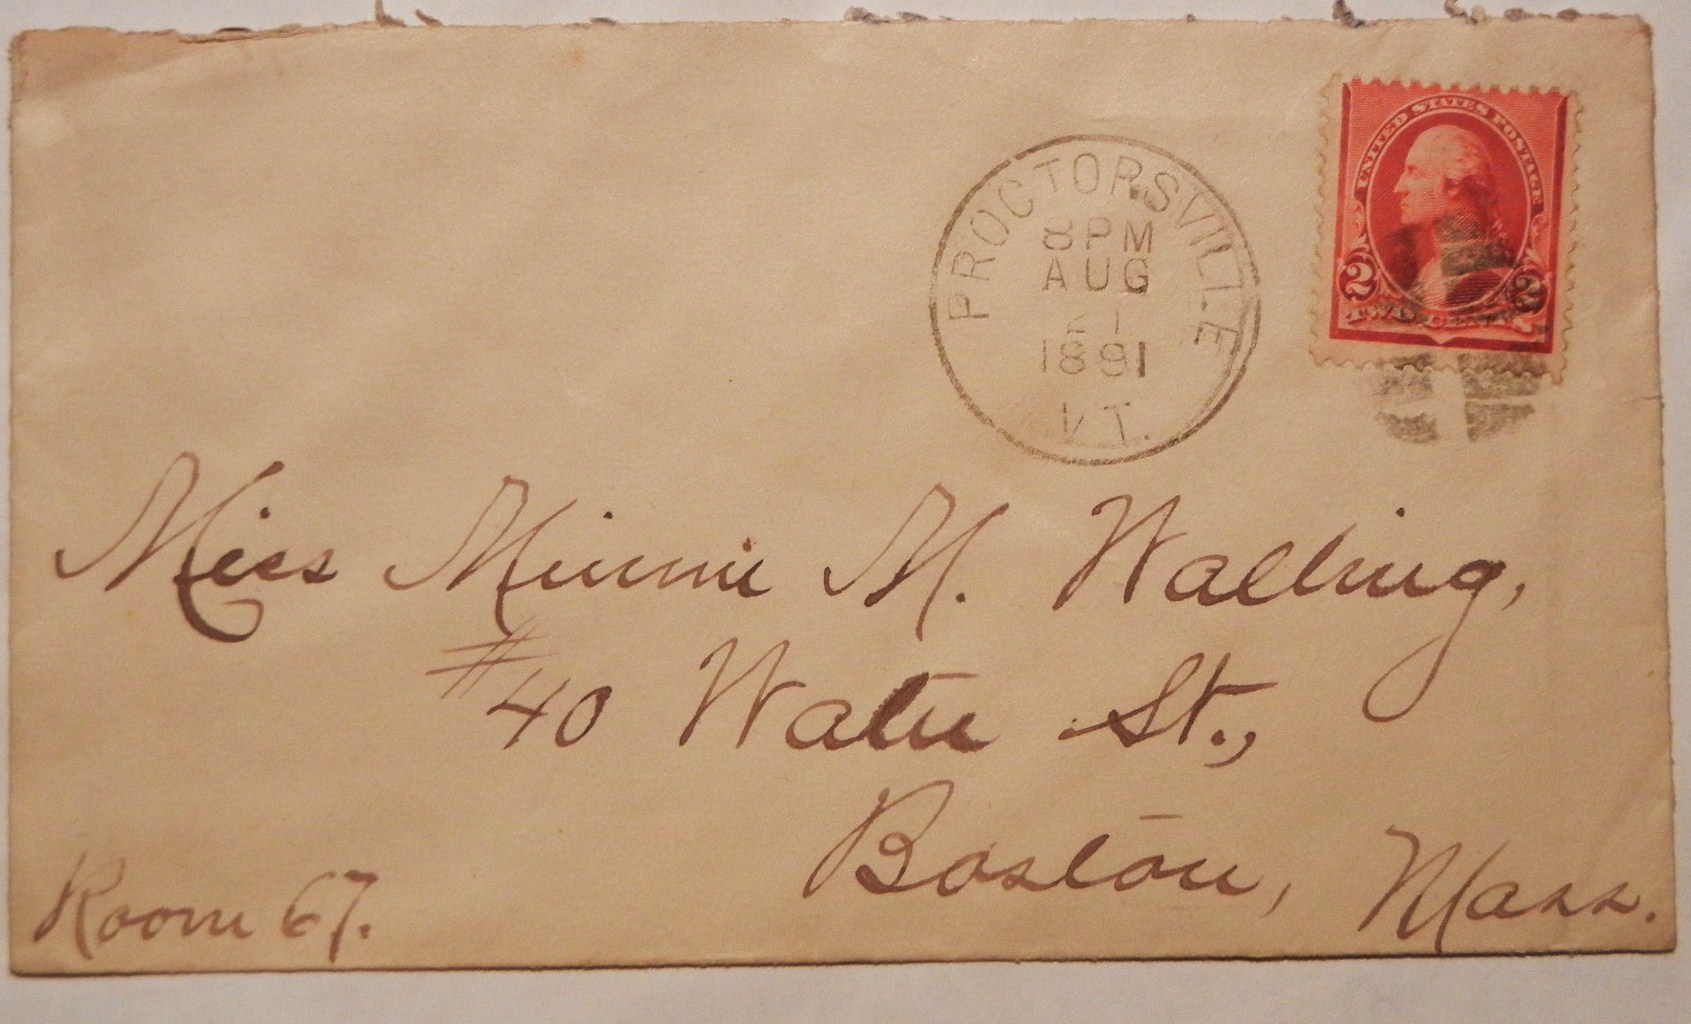 UNITED STATES POSTAGE
2 2
TWO CENTS
PROCTORSVILLE
8PM
AUG
21
1891
VT.
Miss Minnie M. Walling,
#40 Water St.,
Boston, Mass.
Room 67.